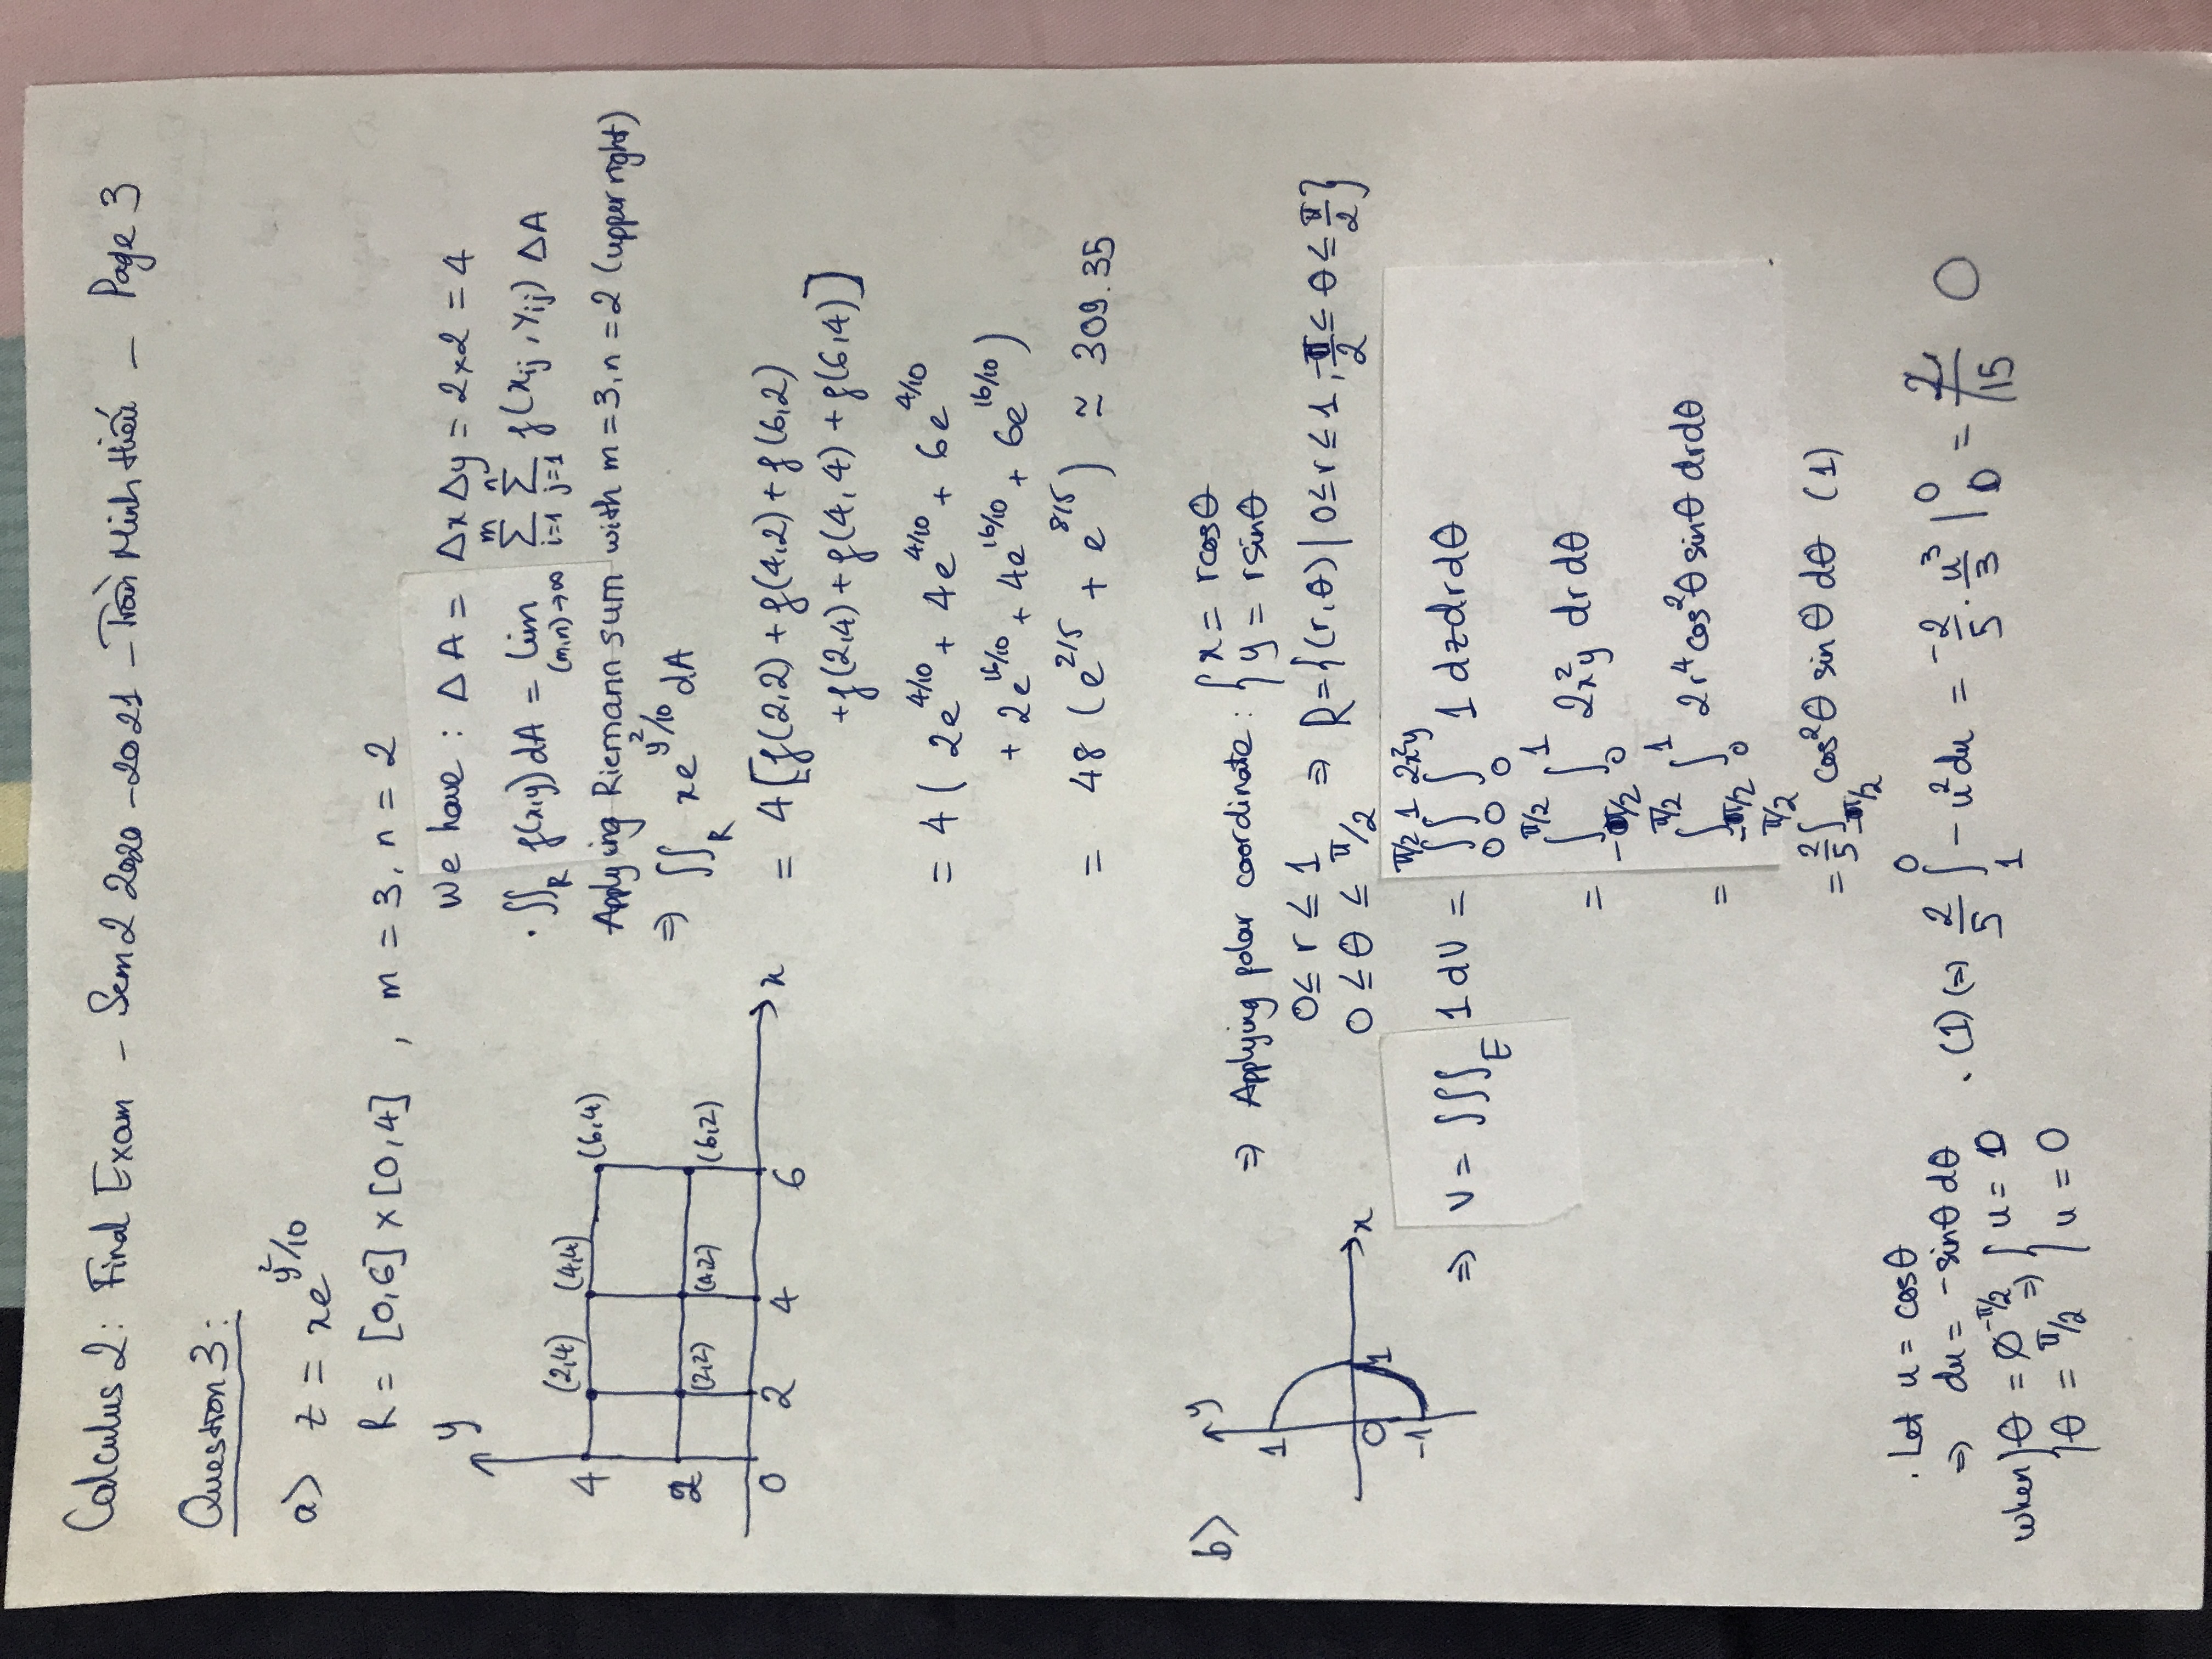 Calculus 2: Final Exam - Sem 2 2020-2021 - Trần Minh Hiếu - Page 3
Question 3:
a) z = xe^{y²/10}
R = [0,6] × [0,4] , m = 3, n = 2
We have : ΔA = ΔxΔy = 2×2 = 4
. ∬_R f(x,y) dA = lim_{(m,n)→∞} Σ_{i=1}^{m} Σ_{j=1}^{n} f(x_{ij}, y_{ij}) ΔA
Applying Riemann sum with m = 3, n = 2 (upper right)
⇒ ∬_R xe^{y²/10} dA
= 4[f(2,2) + f(4,2) + f(6,2)
+ f(2,4) + f(4,4) + f(6,4)]
= 4( 2e^{4/10} + 4e^{4/10} + 6e^{4/10}
+ 2e^{16/10} + 4e^{16/10} + 6e^{16/10} )
= 48 (e^{2/5} + e^{8/5}) ≃ 309.35
y
4 (2,4) (4,4) (6,4)
2 (2,2) (4,2) (6,2)
0 2 4 6 x
b) y
1
0 1 x
-1
⇒ Applying polar coordinate: { x = rcosθ
y = rsinθ
0 ≤ r ≤ 1
0 ≤ θ ≤ π/2
⇒ R = {(r,θ) | 0 ≤ r ≤ 1, -π/2 ≤ θ ≤ π/2}
⇒ V = ∭_E 1 dV = ∫_0^{π/2} ∫_0^1 ∫_0^{2x²y} 1 dz dr dθ
= ∫_{-π/2}^{π/2} ∫_0^1 2x²y dr dθ
= ∫_{-π/2}^{π/2} ∫_0^1 2r⁴cos²θ sinθ drdθ
= 2/5 ∫_{-π/2}^{π/2} cos²θ sinθ dθ (1)
. Let u = cosθ
⇒ du = -sinθ dθ
when { θ = -π/2 ⇒ { u = 0
θ = π/2 u = 0
. (1) (⇒) 2/5 ∫_1^0 -u² du = -2/5 . u³/3 |_0^0 = 2/15 0